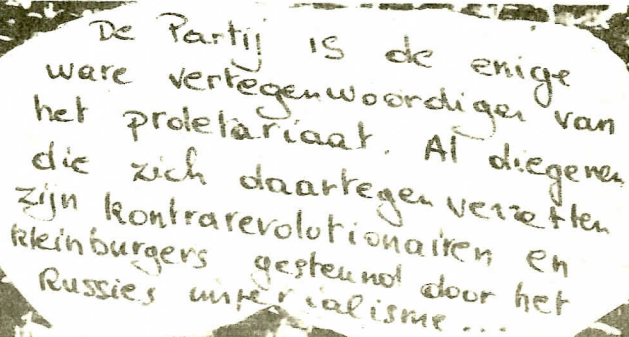 De Partij is de enige
ware vertegenwoordiger van
het proletariaat. Al diegenen
die zich daartegen verzetten
zijn kontrarevolutionairen en
kleinburgers gesteund door het
Russies imperialisme...